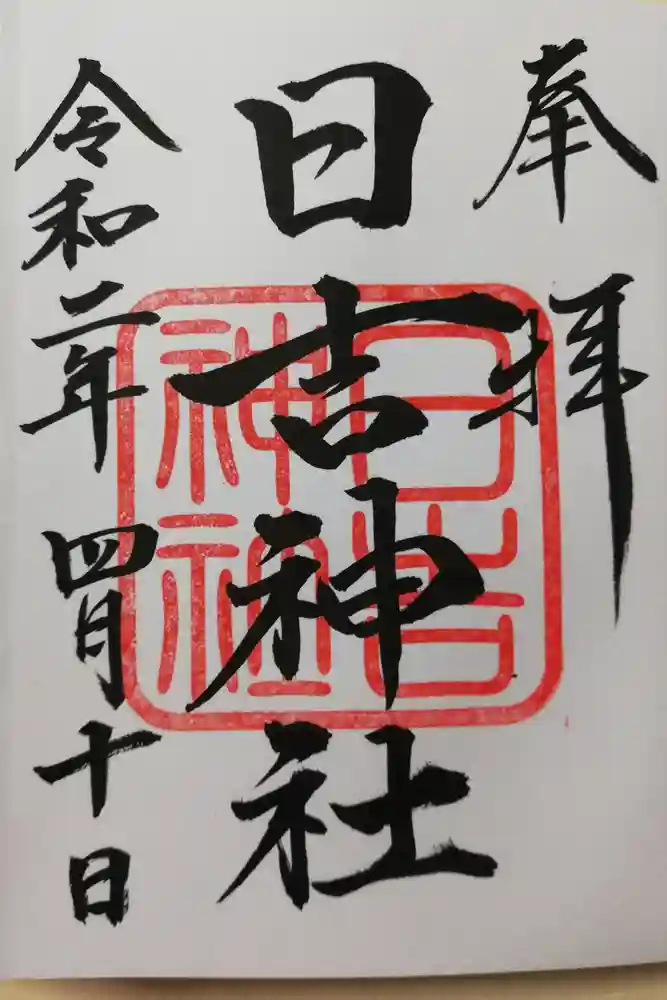 奉拝
日吉神社
令和二年四月十日
日吉
神社